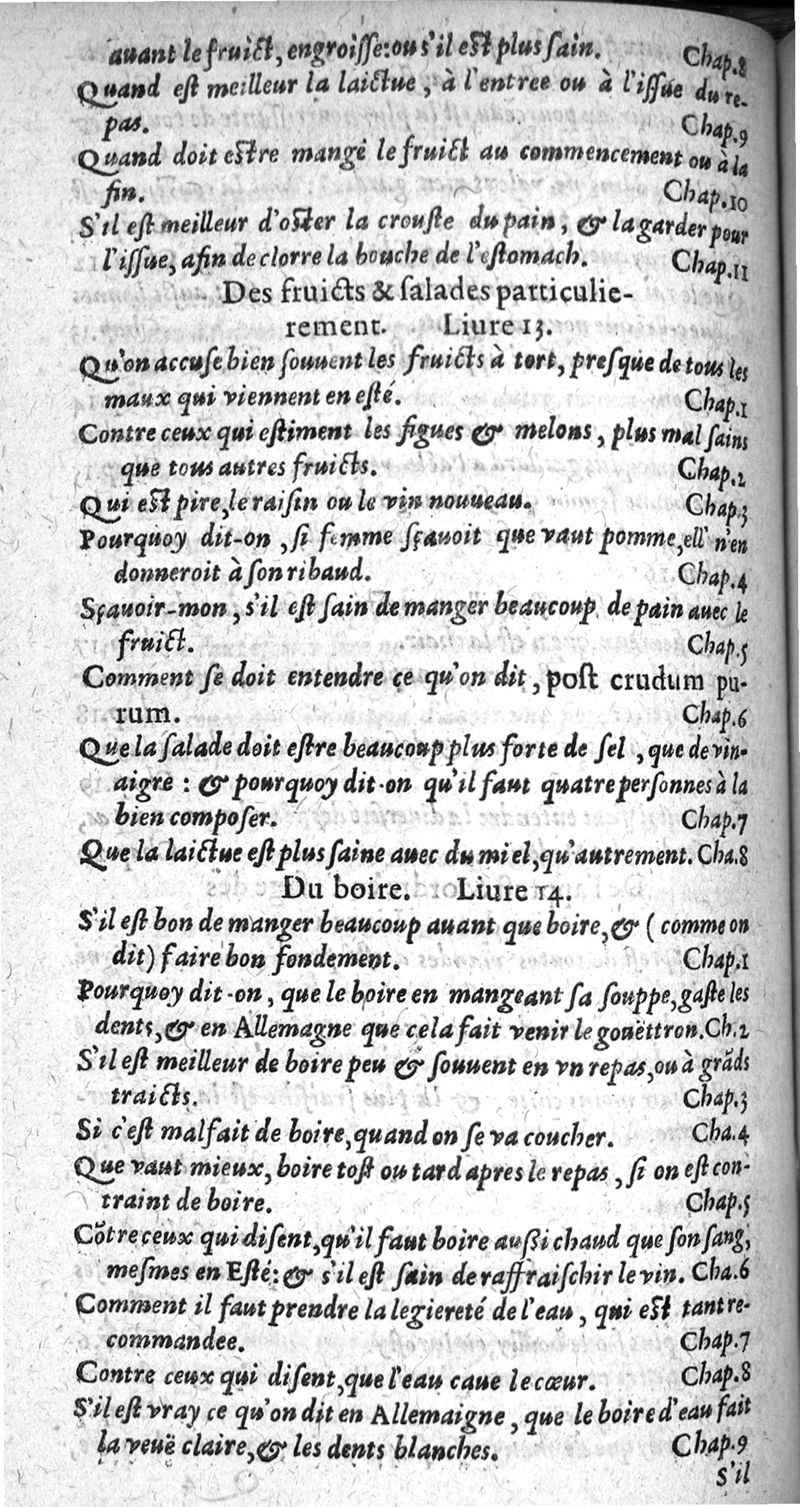 auant le fruict, engroisse: ou s'il est plus sain. Chap.8
Quand est meilleur la laictue, à l'entree ou à l'issue du re-
pas. Chap.9
Quand doit estre mangé le fruict au commencement ou à la
fin. Chap.10
S'il est meilleur d'oster la crouste du pain, & la garder pour
l'issue, afin de clorre la bouche de l'estomach. Chap.11
Des fruicts & salades particulie-
rement. Liure 13.
Qu'on accuse bien souuent les fruicts à tort, presque de tous les
maux qui viennent en esté. Chap.1
Contre ceux qui estiment les figues & melons, plus mal sains
que tous autres fruicts. Chap.2
Qui est pire, le raisin ou le vin nouueau. Chap.3
Pourquoy dit-on, si femme sçauoit que vaut pomme, ell' n'en
donneroit à son ribaud. Chap.4
Sçauoir-mon, s'il est sain de manger beaucoup de pain auec le
fruict. Chap.5
Comment se doit entendre ce qu'on dit, post crudum pu-
rum. Chap.6
Que la salade doit estre beaucoup plus forte de sel, que de vin-
aigre: & pourquoy dit-on qu'il faut quatre personnes à la
bien composer. Chap.7
Que la laictue est plus saine auec du miel, qu'autrement. Cha.8
Du boire. Liure 14.
S'il est bon de manger beaucoup auant que boire, & (comme on
dit) faire bon fondement. Chap.1
Pourquoy dit-on, que le boire en mangeant sa souppe, gaste les
dents, & en Allemagne que cela fait venir le gouëttron. Ch.2
S'il est meilleur de boire peu & souuent en vn repas, ou à grāds
traicts. Chap.3
Si c'est mal fait de boire, quand on se va coucher. Cha.4
Que vaut mieux, boire tost ou tard apres le repas, si on est con-
traint de boire. Chap.5
Cōtre ceux qui disent, qu'il faut boire aussi chaud que son sang,
mesmes en Esté: & s'il est sain de raffraischir le vin. Cha.6
Comment il faut prendre la legiereté de l'eau, qui est tant re-
commandee. Chap.7
Contre ceux qui disent, que l'eau caue le cœur. Chap.8
S'il est vray ce qu'on dit en Allemaigne, que le boire d'eau fait
la veuë claire, & les dents blanches. Chap.9
S'il